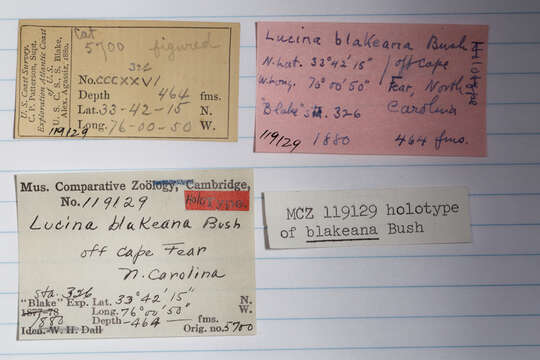 U. S. Coast Survey,
C. P. Patterson, Supt.
Exploration Atlantic Coast
of U. S.
U. S. C. S. S. Blake,
Alex. Agassiz, 1880.
119129
Cat
5700 figured
326
No. CCCXXVI
Depth 464 fms.
Lat. 33-42-15 N.
Long. 76-00-50 W.
Lucina blakeana Bush
N. Lat. 33°42'15" off Cape
W. Long. 76°00'50" Fear, North
"Blake" sta. 326 Carolina
119129 1880 464 fms.
Mus. Comparative Zoölogy, Cambridge,
No. 119129
Lucina blakeana Bush
off Cape Fear
N. Carolina
sta. 326
"Blake" Exp. Lat. 33°42'15" N.
1877-78 Long. 76°00'50" W.
1880 Depth 464 fms.
Iden. W. H. Dall Orig. no. 5700
MCZ 119129 holotype
of blakeana Bush